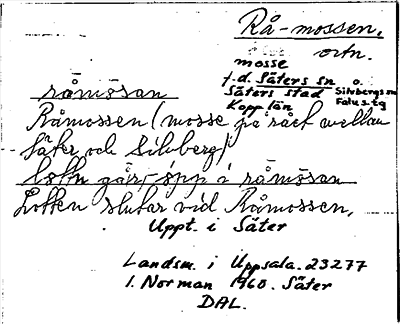 Rå-mossen,
ortn.
mosse
f.d. Säters sn o. Silvbergs sn
Säters stad Falu s:tg
Kopp län
råmösan
Råmossen (mosse på rået mellan
Säter och Silvberg)
går öpp i råmösan
Lotten slutar vid Råmossen.
Uppt. i Säter
Landsm. i Uppsala. 23277
I. Norman 1960. Säter
DAL.